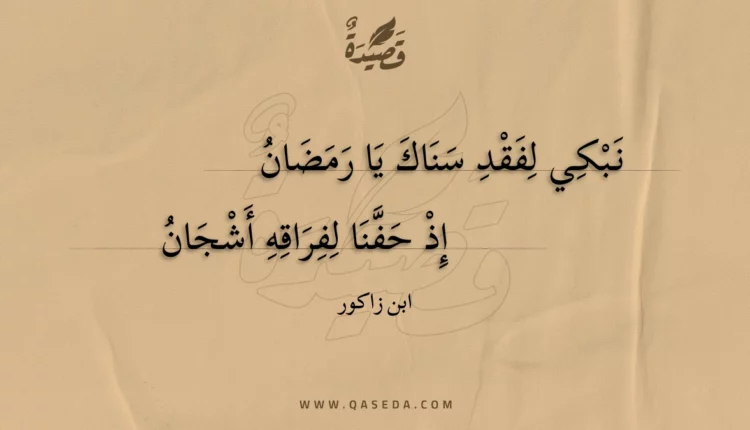 قَصِيدَةٌ
نَبْكِي لِفَقْدِ سَنَاكَ يَا رَمَضَانُ
إِذْ حَفَّنَا لِفِرَاقِهِ أَشْجَانُ
ابن زاكور
WWW.QASEDA.COM